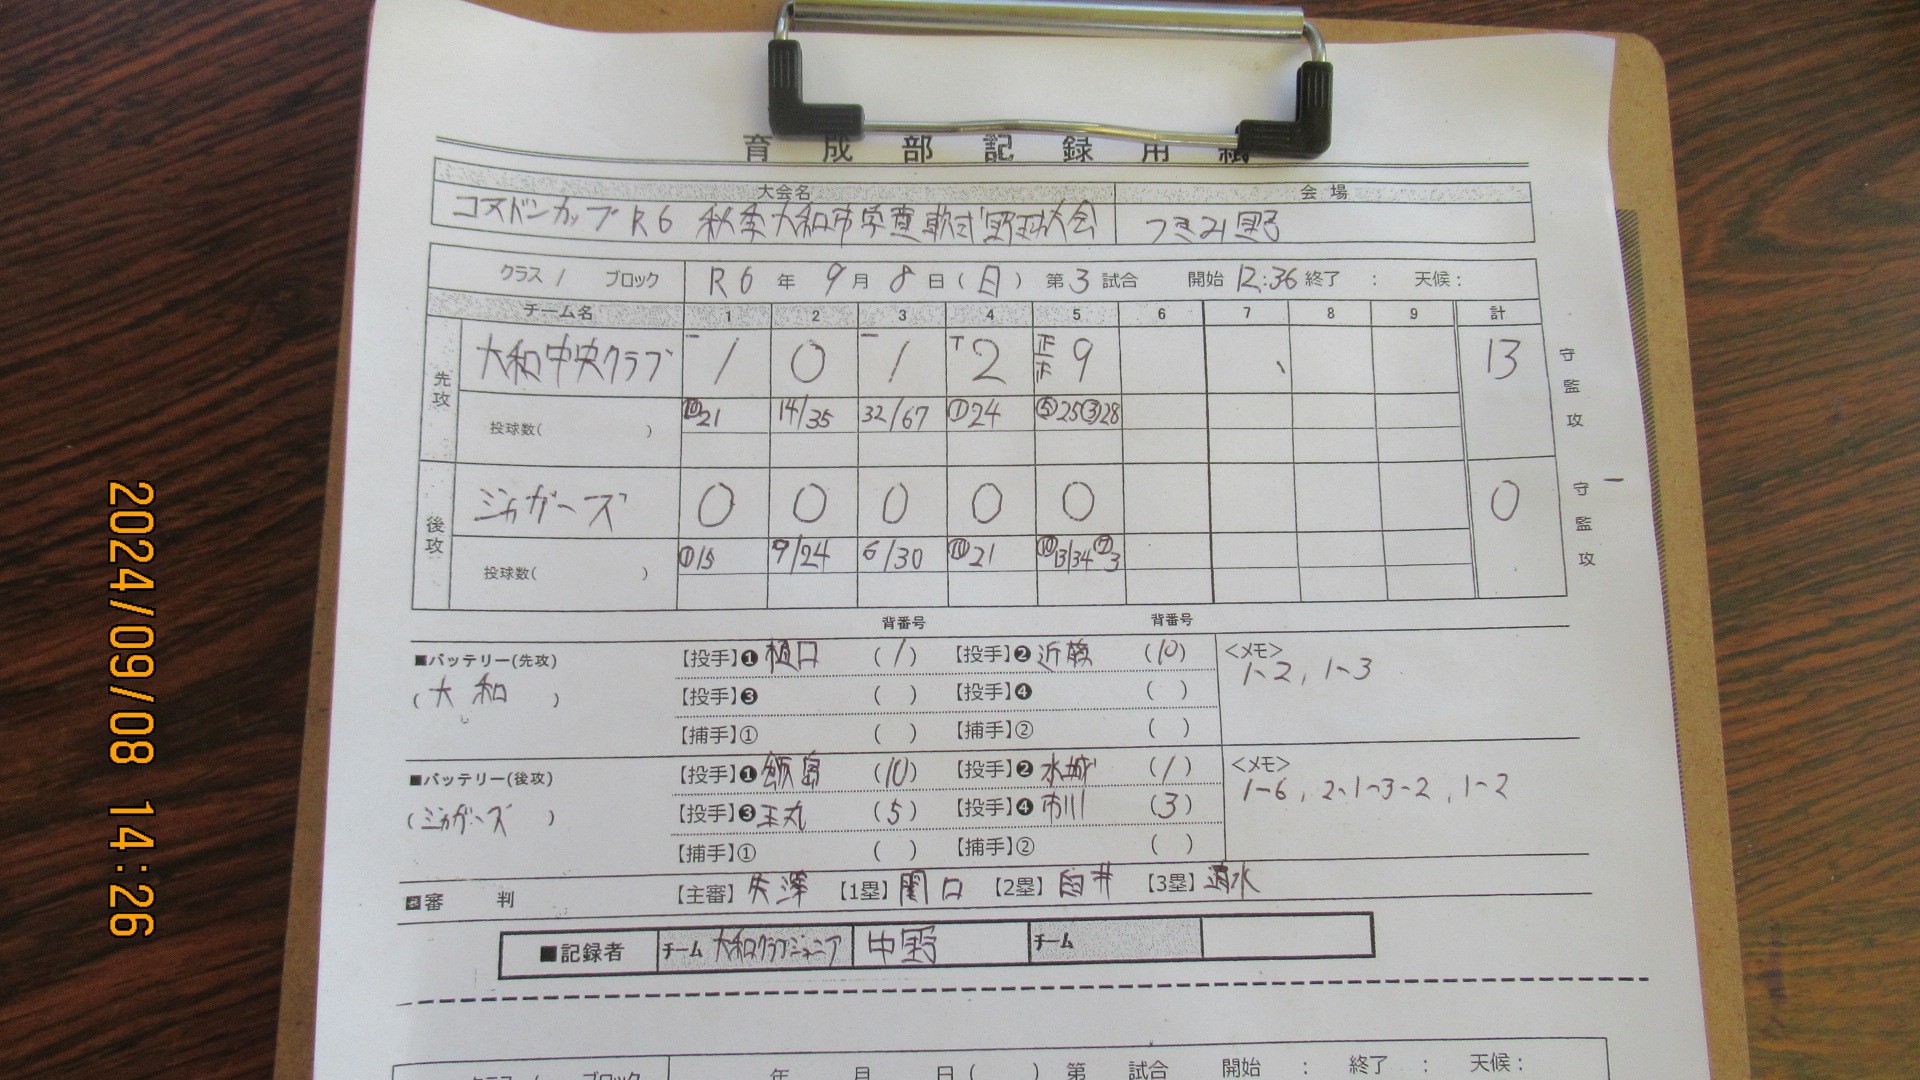 育成部記録用紙
大会名 会場
コスドンカップ R6 秋季大和市学童軟式野球大会 つきみ野
クラス / ブロック R6年 9月 8日(日) 第3試合 開始 12:36 終了 : 天候:
チーム名 1 2 3 4 5 6 7 8 9 計
先攻 大和中央クラブ 一 1 0 一 1 T 2 正ホ 9 13 守監攻
投球数( ) ⑩21 14/35 32/67 ①24 ⑤25③28
後攻 ジャガーズ 0 0 0 0 0 0 守一監攻
投球数( ) ①15 9/24 6/30 ⑩21 ⑩13/34 ⑦3
背番号 背番号
■バッテリー(先攻) 【投手】❶樋口 (1) 【投手】❷近藤 (10) <メモ>
(大和) 【投手】❸ ( ) 【投手】❹ ( ) 1-2, 1-3
【捕手】① ( ) 【捕手】② ( )
■バッテリー(後攻) 【投手】❶飯島 (10) 【投手】❷水城 (1) <メモ>
(ジャガーズ) 【投手】❸玉丸 (5) 【投手】❹市川 (3) 1-6, 2-1-3-2, 1-2
【捕手】① ( ) 【捕手】② ( )
審判 【主審】矢澤 【1塁】関口 【2塁】臼井 【3塁】清水
■記録者 チーム 大和クラブジュニア 中野 チーム
クラス / ブロック 年 月 日( ) 第 試合 開始 : 終了 : 天候:
2024/09/08 14:26